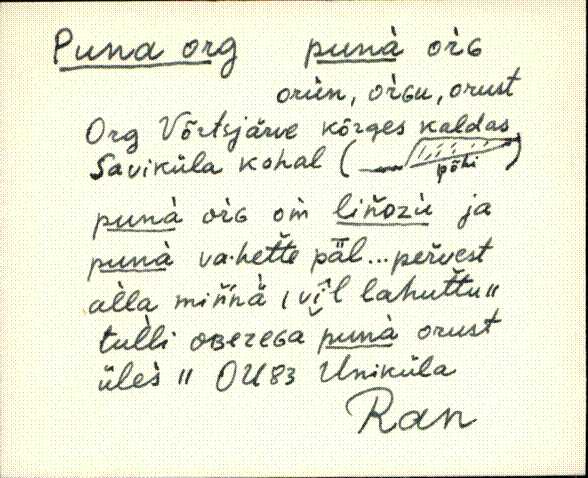 Puna org punà òrG
orùn, òrGu, orust
Org Võrtsjärve kõrges kaldas
Saviküla kohal (põhi)
punà òrG om̀ liǹozù ja
punà va·hette päl... peřvest
alla miňnä, vil lahuttu"
tulli oBezeGa punà orust
üleš" OU83 Uniküla
Ran